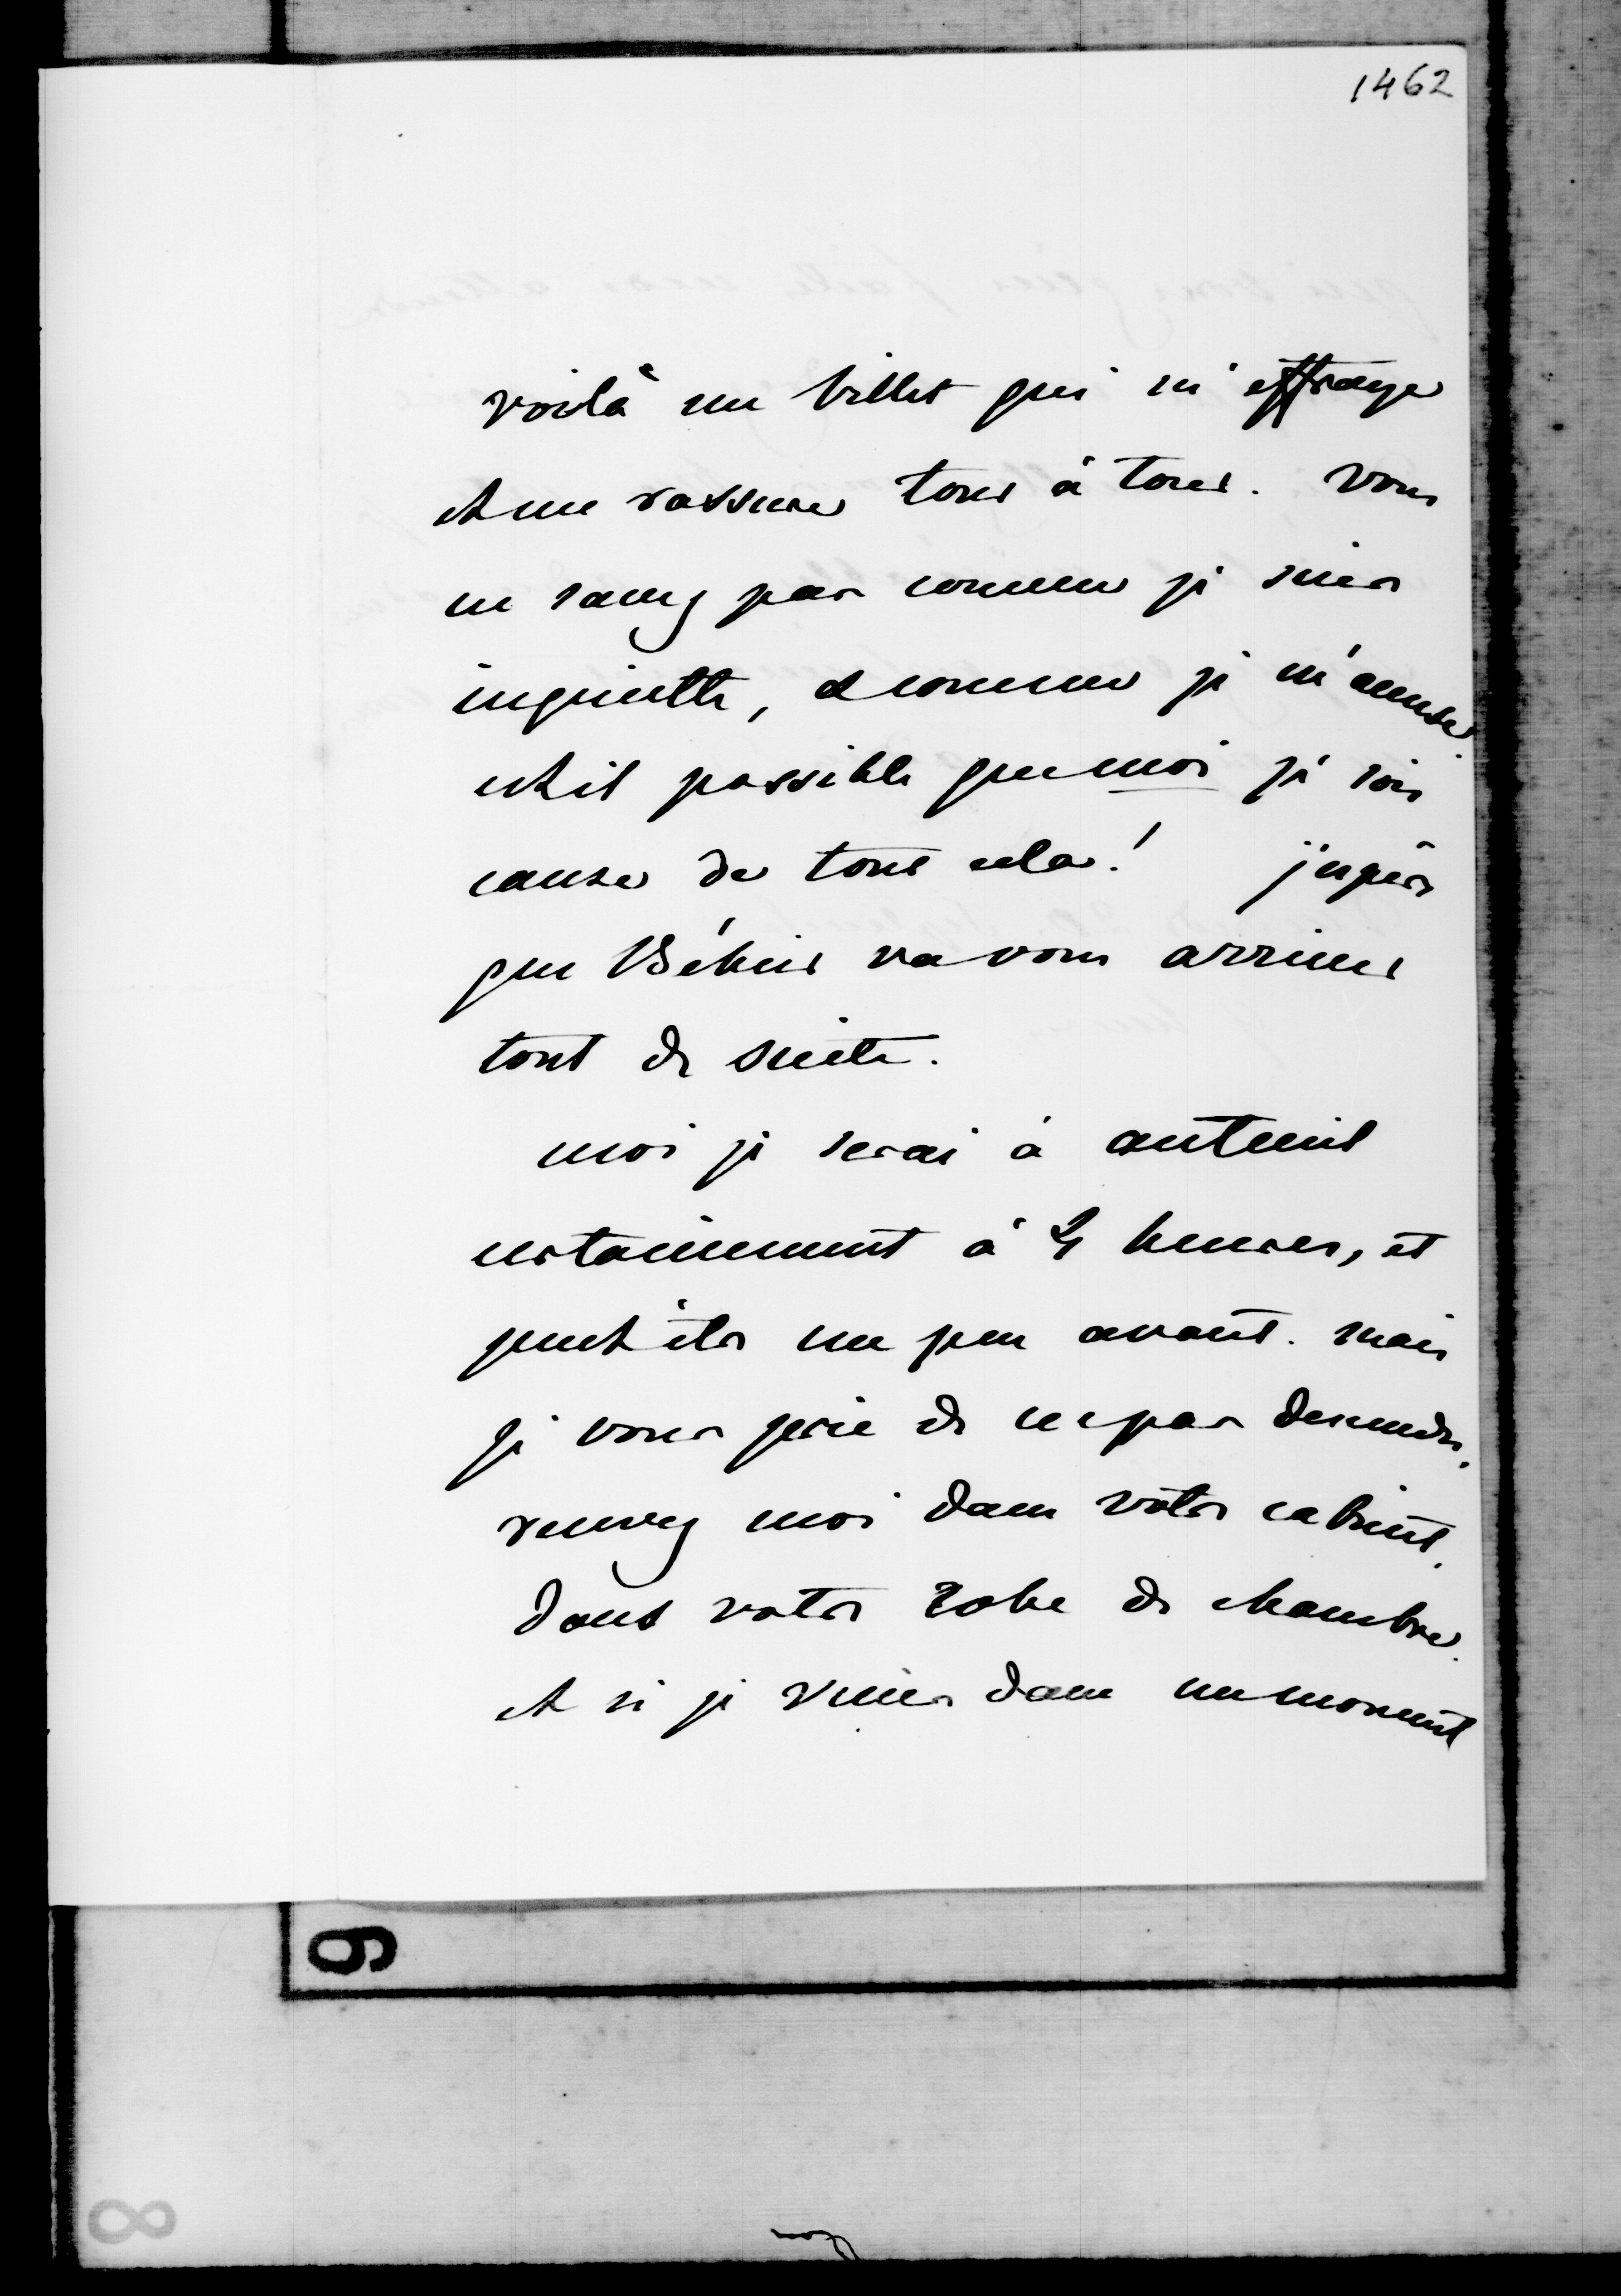 1462
voilà un billet qui m'effraye
et me rassure tour à tour. vous
ne savez pas comme je suis
inquiette, & comme je m'accuse.
est il possible que moi je sois
cause de tout cela! j'espère
que Béhier va vous arriver
tout de suite.
moi je serai à auteuil
certainement à 4 heures, et
peut être un peu avant. mais
je vous prie de ne pas descendre.
recevez moi dans votre cabinet.
dans votre robe de chambre.
et si je viens dans un moment
9
8